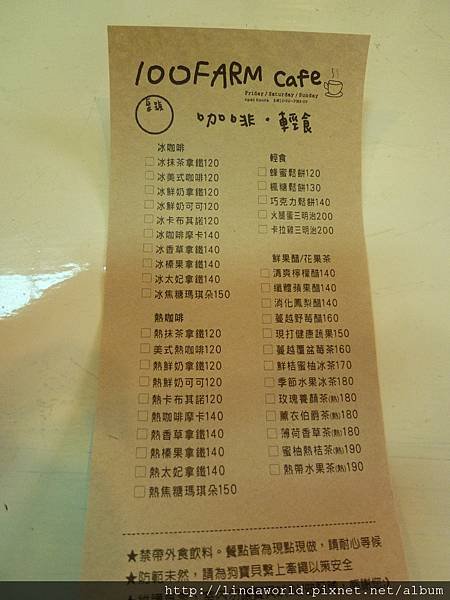 100FARM cafe
Friday/Saturday/Sunday
桌號
咖啡・輕食
冰咖啡
冰抹茶拿鐵120
冰美式咖啡120
冰鮮奶拿鐵120
冰鮮奶可可120
冰卡布其諾120
冰咖啡摩卡140
冰香草拿鐵140
冰榛果拿鐵140
冰太妃拿鐵140
冰焦糖瑪琪朵150
熱咖啡
熱抹茶拿鐵120
美式熱咖啡120
熱鮮奶拿鐵120
熱鮮奶可可120
熱卡布其諾120
熱咖啡摩卡140
熱香草拿鐵140
熱榛果拿鐵140
熱太妃拿鐵140
熱焦糖瑪琪朵150
輕食
蜂蜜鬆餅120
楓糖鬆餅130
巧克力鬆餅140
火腿蛋三明治200
卡拉雞三明治200
鮮果醋/花果茶
清爽檸檬醋140
纖體蘋果醋140
消化鳳梨醋140
蔓越野莓醋160
現打健康蔬果150
蔓越覆盆莓茶160
鮮桔蜜柚冰茶170
季節水果冰茶180
玫瑰養顏茶(熱)180
薰衣伯爵茶(熱)180
薄荷香草茶(熱)180
蜜柚熱桔茶(熱)190
熱帶水果茶(熱)190
★禁帶外食飲料。餐點皆為現點現做，請耐心等候
★防範未然，請為狗寶貝繫上牽繩以策安全
http://lindaworld.pixnet.net/album